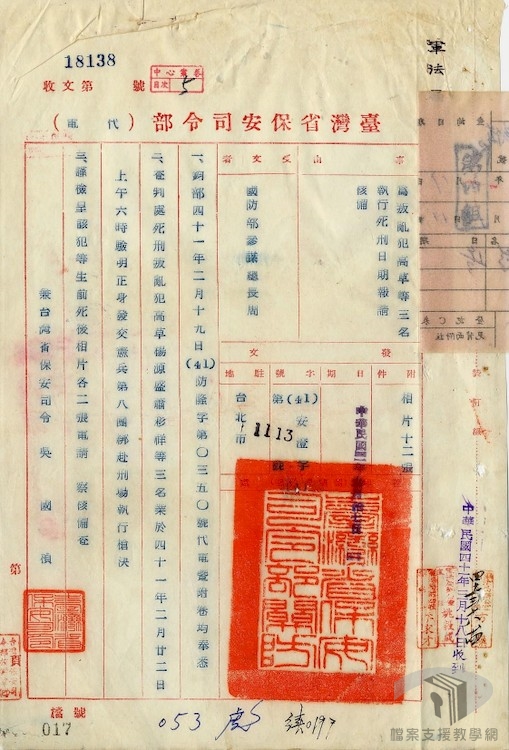 18138
收文第 號
中心黨卷
目次 5
臺灣省保安司令部(代電)
事由
為叛亂犯高草等三名
執行死刑日期報請
核備
受文者
國防部參謀總長周
發文
附件
相片十二張
日期
字號
(41)安澄字
第1113號
駐地
台北市
一、鈞部四十一年二月十九日(41)防隆字第〇三五〇號代電暨附卷均奉悉
二、查判處死刑叛亂犯高草楊源盛蕭彩祥等三名業於四十一年二月廿二日
上午六時驗明正身發交憲兵第八團綁赴刑場執行槍決
三、謹檢呈該犯等生前死後相片各二張電請 察核備查
兼台灣省保安司令 吳國禎
臺灣省保安司令部關防
中華民國四十年 月十八日收到
軍法
第 頁
檔號
017
053
續0197
檔案支援教學網